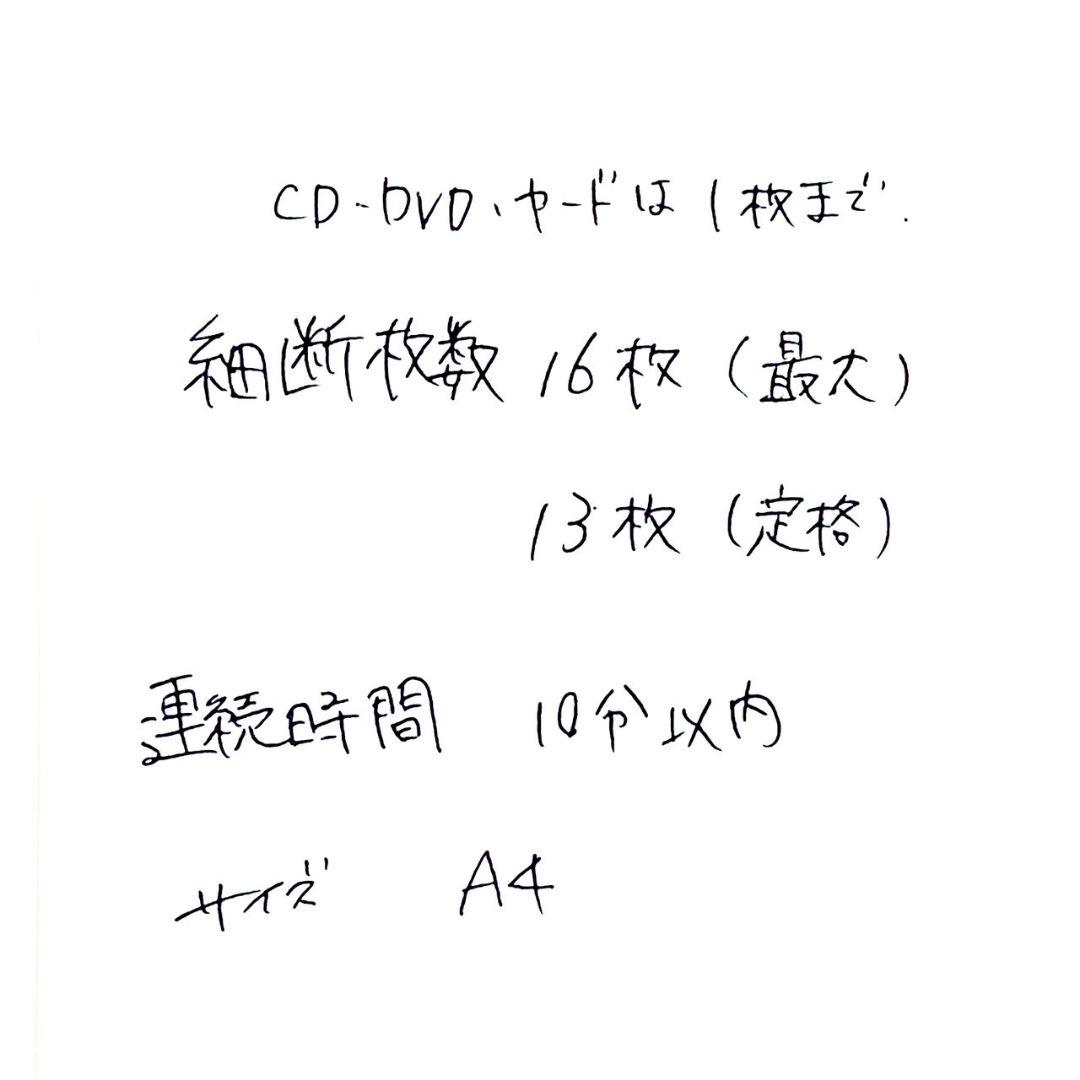 CD・DVD、カードは1枚まで.
細断枚数 16枚(最大)
13枚(定格)
連続時間 10分以内
サイズ A4